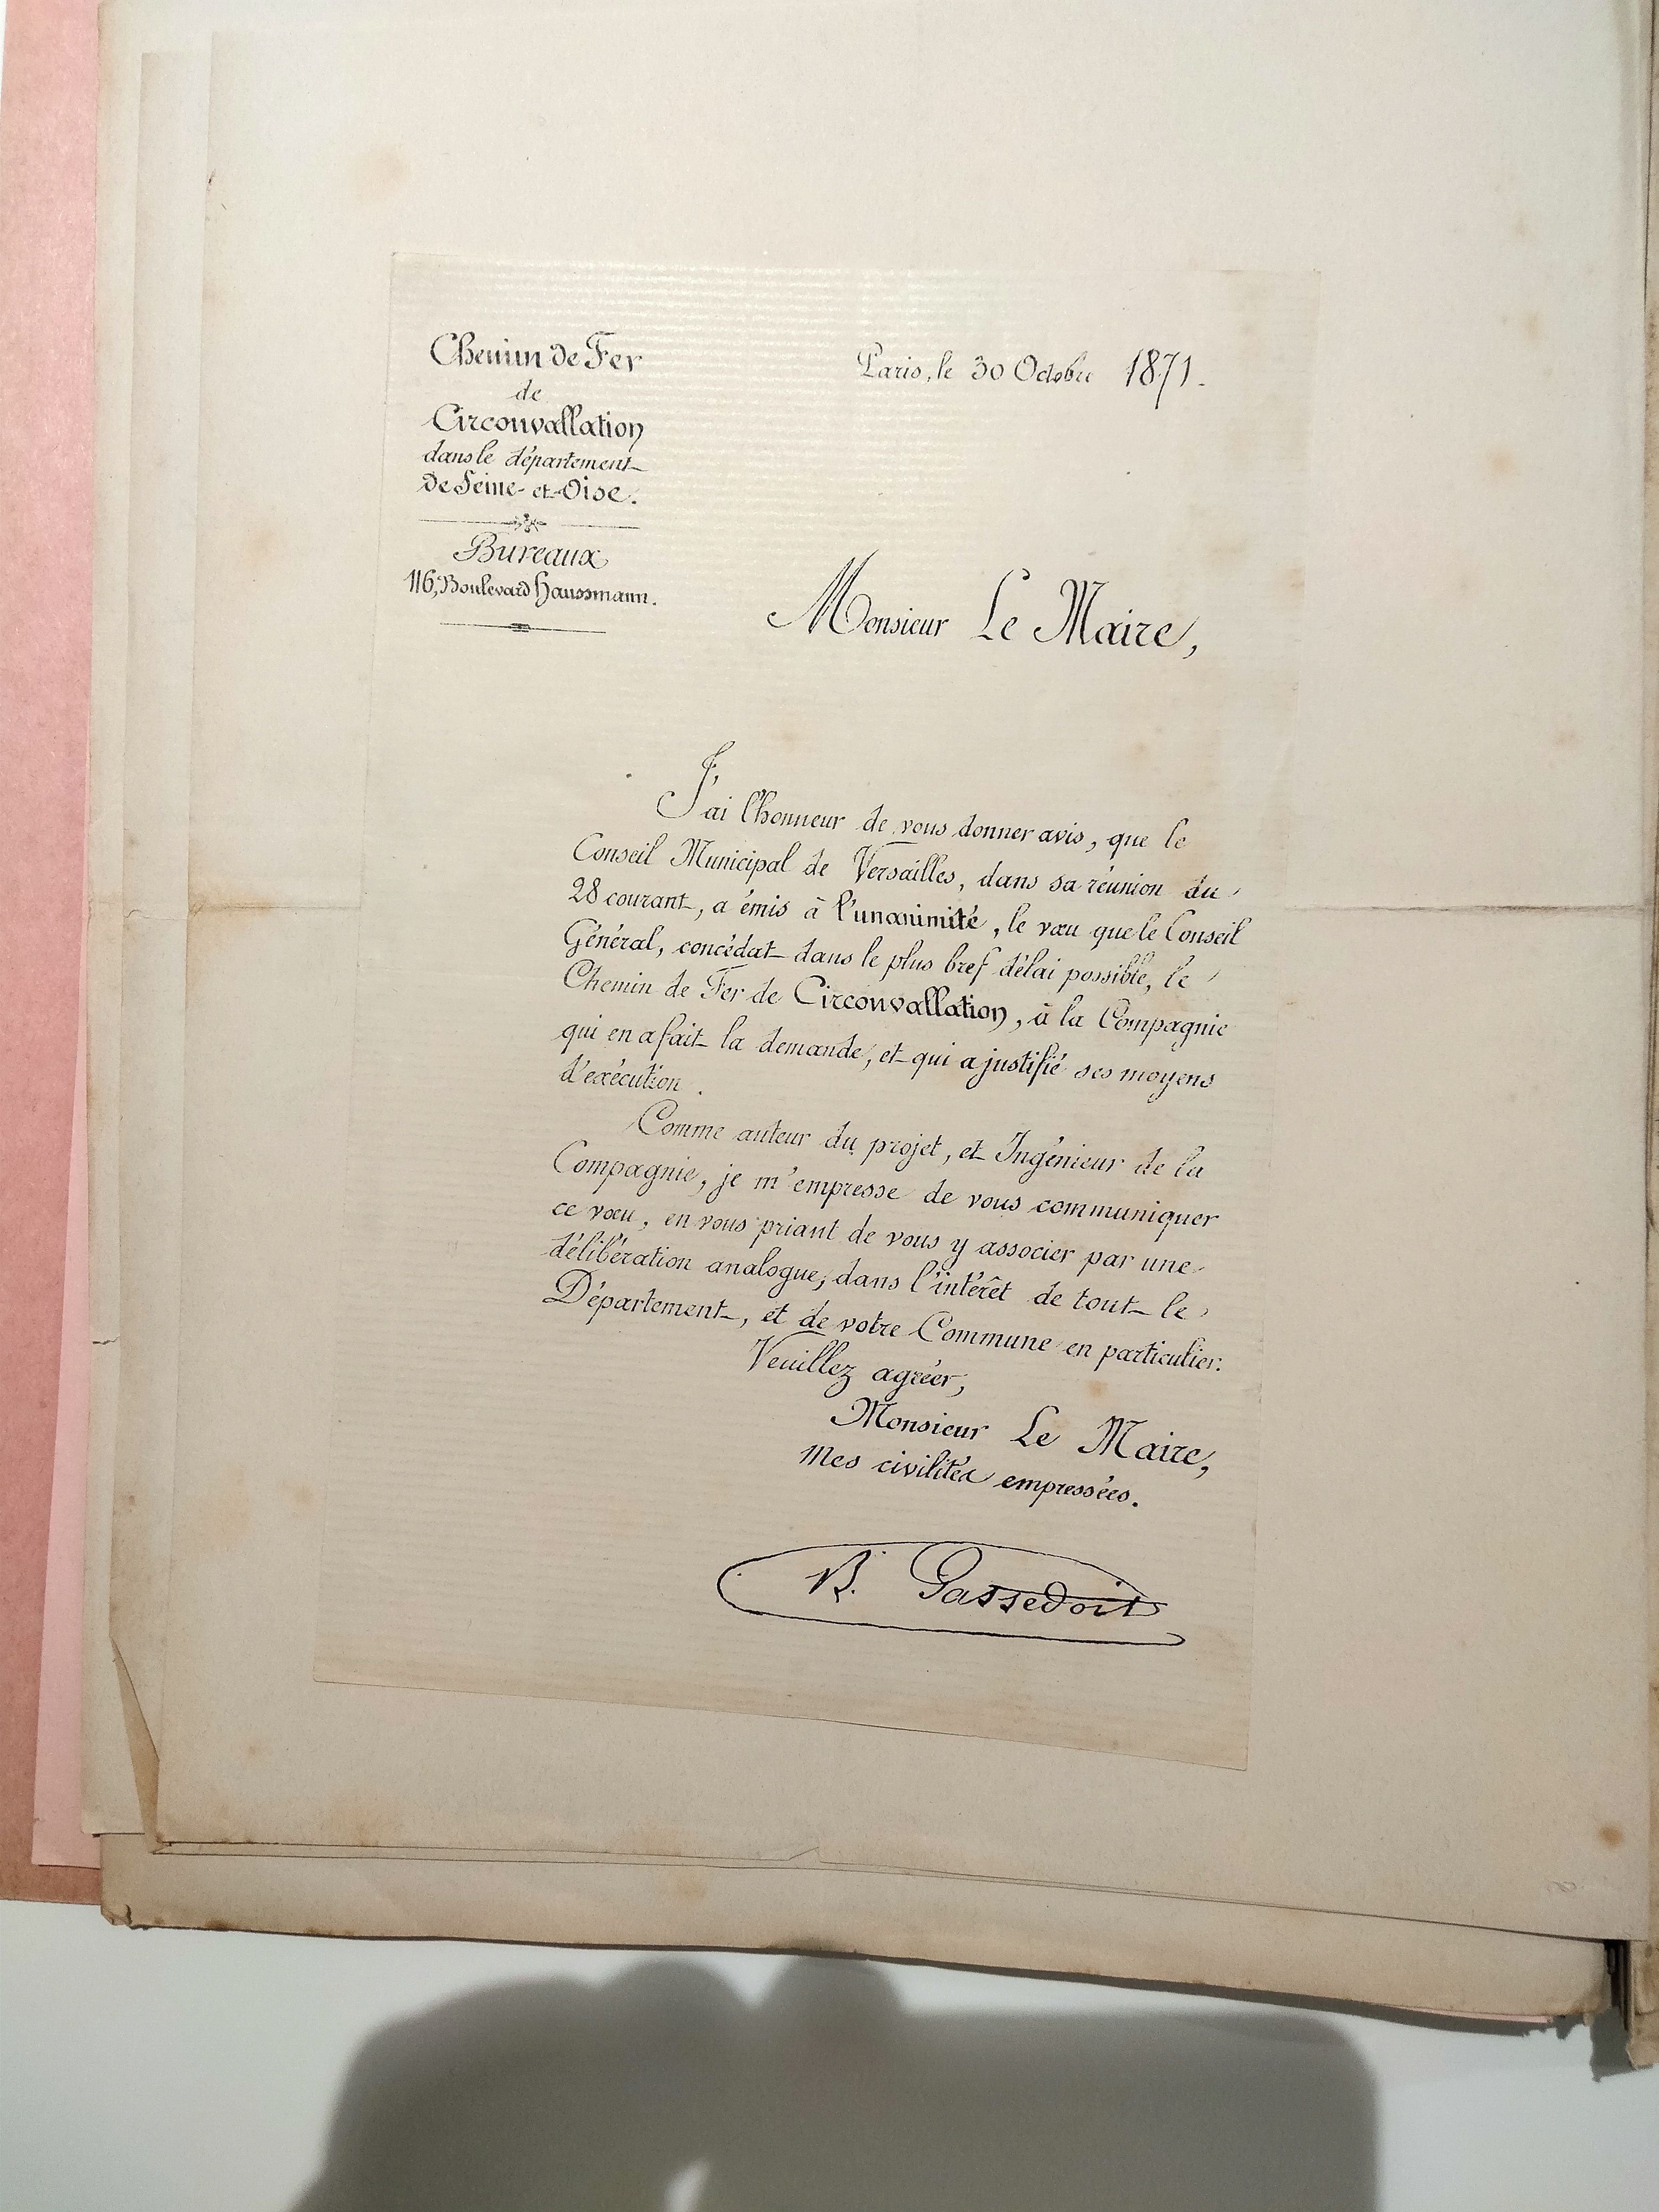 Chemin de Fer
de
Circonvallation
dans le département
de Seine-et-Oise.
Bureaux
116, Boulevard Haussmann.
Paris, le 30 Octobre 1871.
Monsieur Le Maire,
J'ai l'honneur de vous donner avis, que le
Conseil Municipal de Versailles, dans sa réunion du
28 courant, a émis à l'unanimité, le vœu que le Conseil
Général, concédat dans le plus bref délai possible, le
Chemin de Fer de Circonvallation, à la Compagnie
qui en a fait la demande, et qui a justifié ses moyens
d'exécution.
Comme auteur du projet, et Ingénieur de la
Compagnie, je m'empresse de vous communiquer
ce vœu, en vous priant de vous y associer par une
délibération analogue, dans l'intérêt de tout le
Département, et de votre Commune en particulier.
Veuillez agréer,
Monsieur Le Maire,
Mes civilités empressées.
B. Passedoit